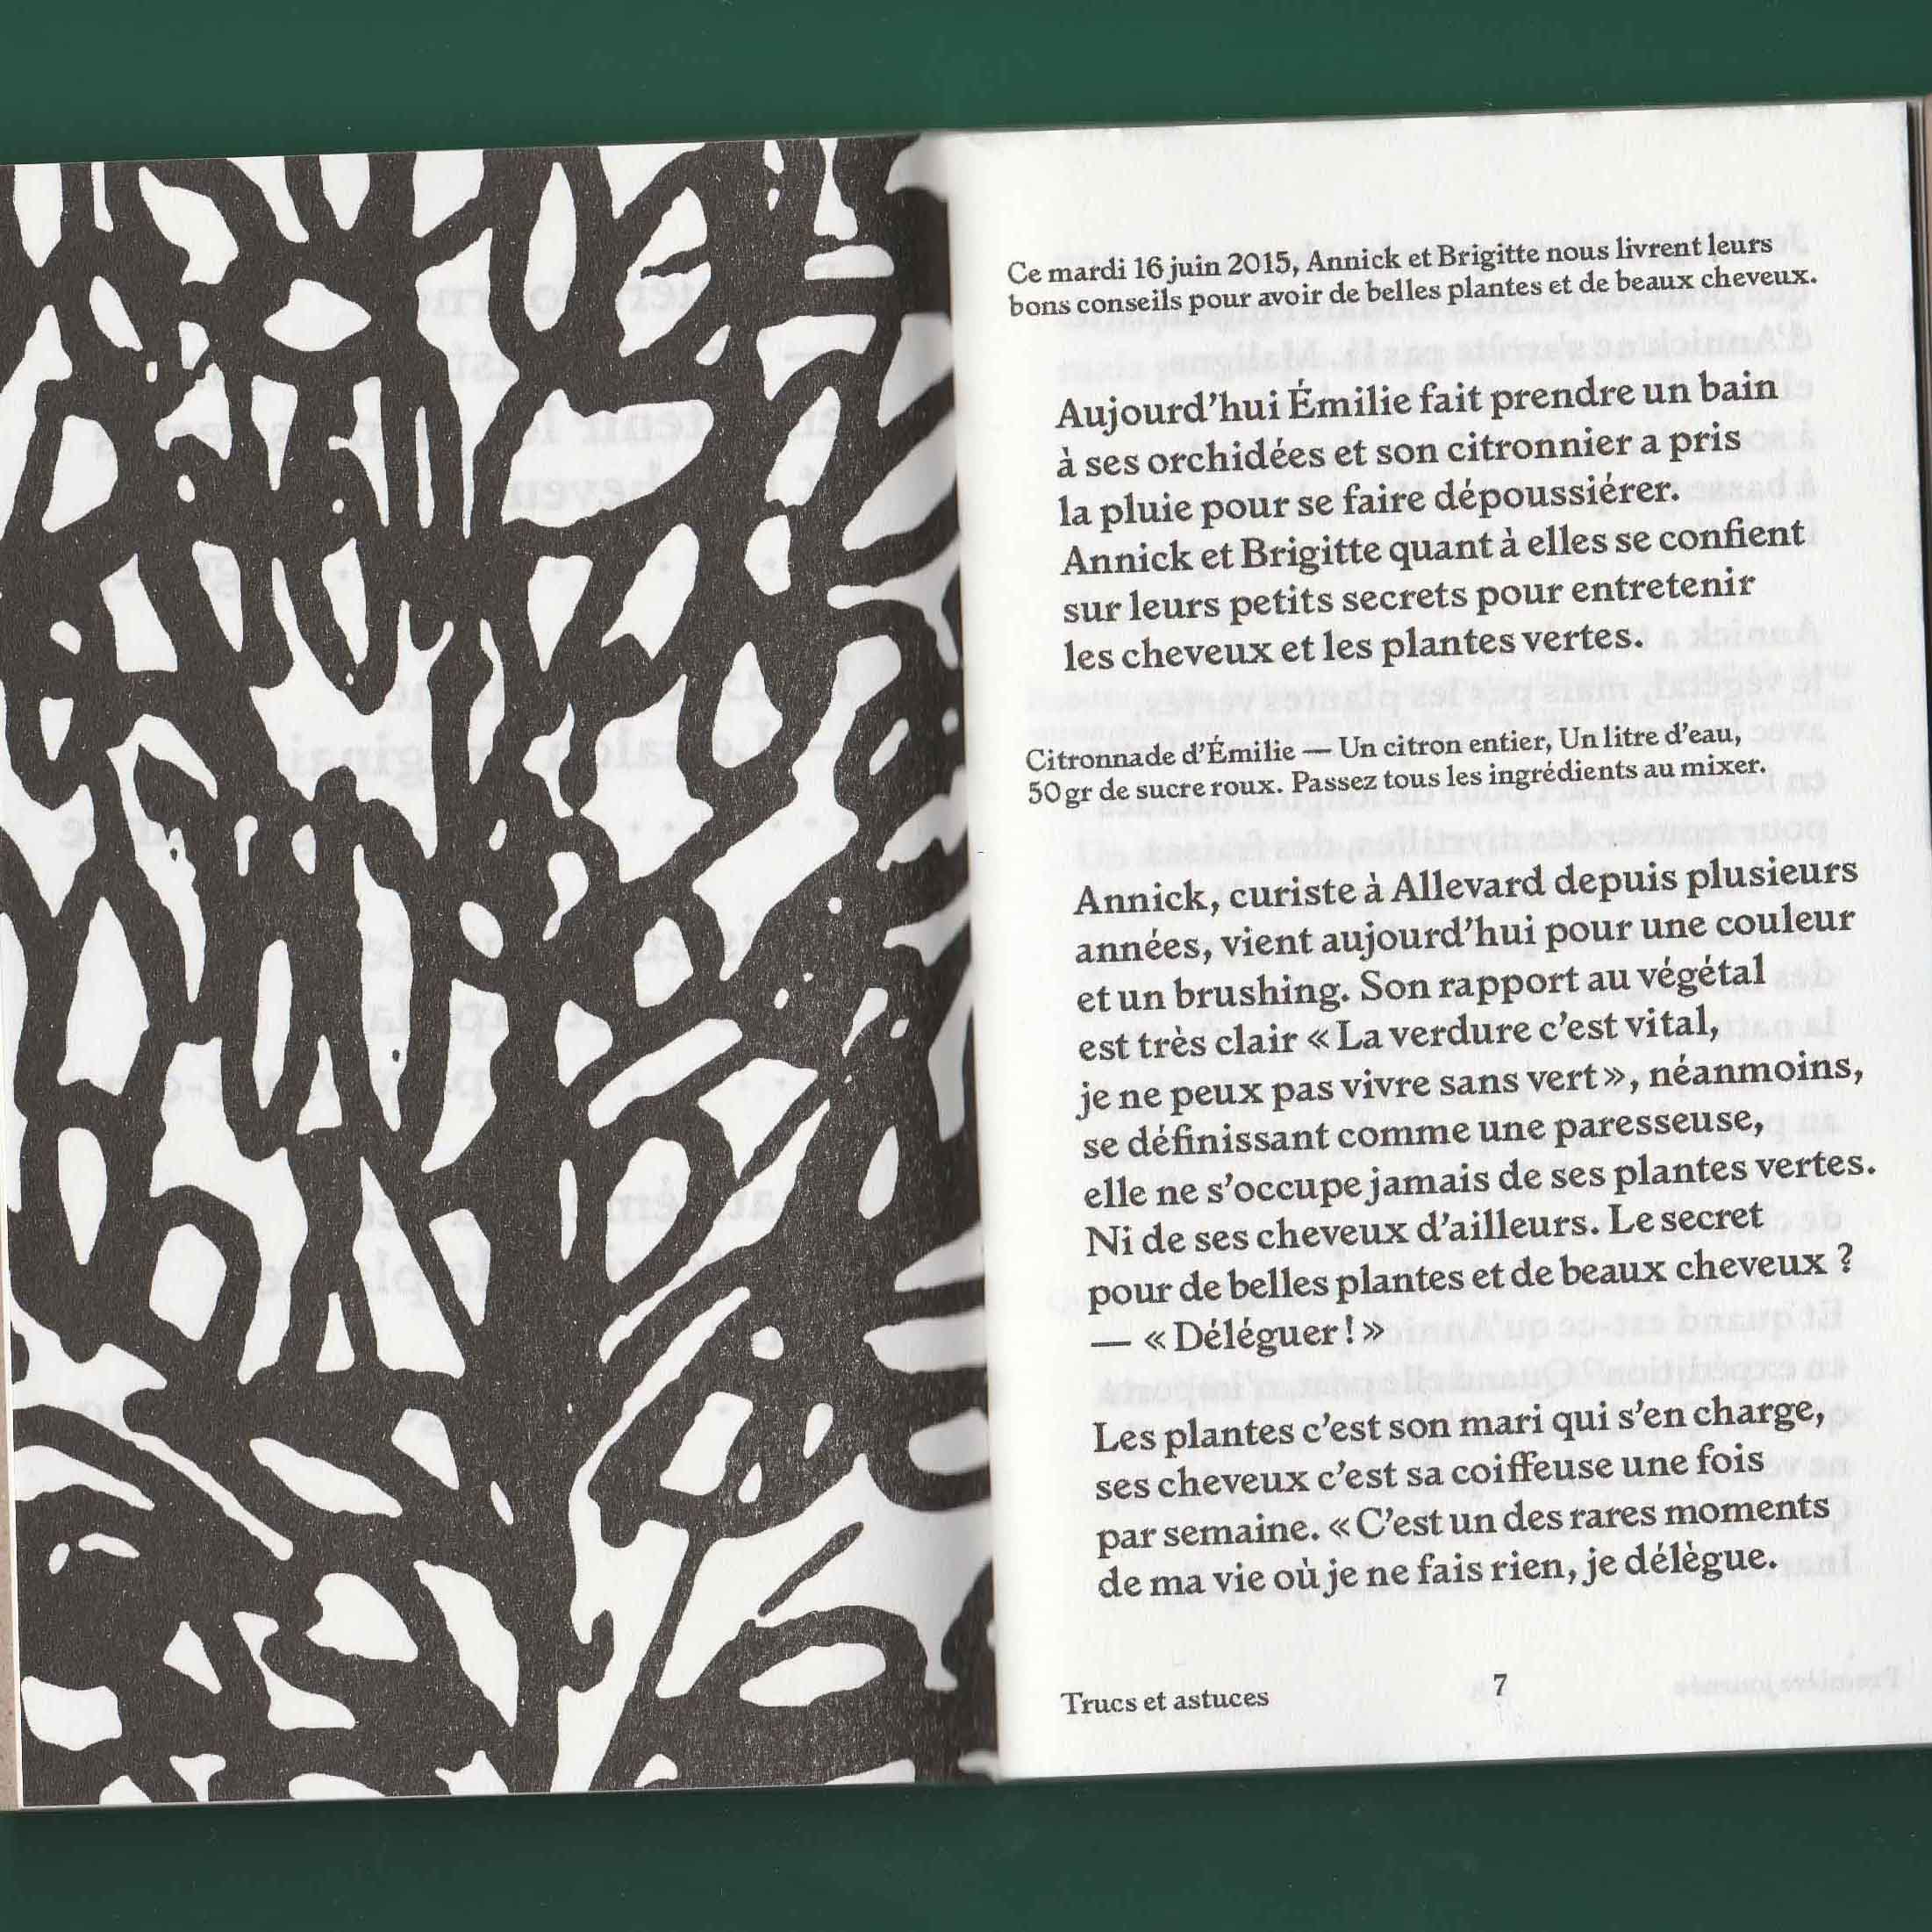 Ce mardi 16 juin 2015, Annick et Brigitte nous livrent leurs
bons conseils pour avoir de belles plantes et de beaux cheveux.
Aujourd’hui Émilie fait prendre un bain
à ses orchidées et son citronnier a pris
la pluie pour se faire dépoussiérer.
Annick et Brigitte quant à elles se confient
sur leurs petits secrets pour entretenir
les cheveux et les plantes vertes.
Citronnade d’Émilie — Un citron entier, Un litre d’eau,
50 gr de sucre roux. Passez tous les ingrédients au mixer.
Annick, curiste à Allevard depuis plusieurs
années, vient aujourd’hui pour une couleur
et un brushing. Son rapport au végétal
est très clair « La verdure c’est vital,
je ne peux pas vivre sans vert », néanmoins,
se définissant comme une paresseuse,
elle ne s’occupe jamais de ses plantes vertes.
Ni de ses cheveux d’ailleurs. Le secret
pour de belles plantes et de beaux cheveux ?
— « Déléguer ! »
Les plantes c’est son mari qui s’en charge,
ses cheveux c’est sa coiffeuse une fois
par semaine. « C’est un des rares moments
de ma vie où je ne fais rien, je délègue.
Trucs et astuces
7